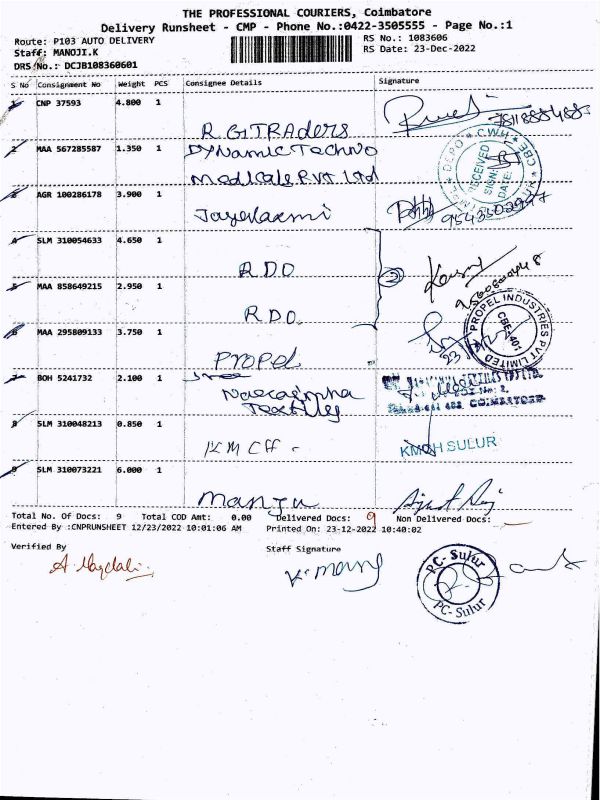 THE PROFESSIONAL COURIERS, Coimbatore
Delivery Runsheet - CMP - Phone No.:0422-3505555 - Page No.:1
Route: P103 AUTO DELIVERY
RS No.: 1083606
Staff: MANOJI.K
RS Date: 23-Dec-2022
DRS No.: DCJB108360601
S No Consignment No Weight PCS Consignee Details Signature
1 CNP 37593 4.800 1
R.G.TRADers
7811888488
2 MAA 567285587 1.350 1 Dynamic Techno
Medicals Pvt Ltd
DEPO * CWH * CBE
RECEIVED
SIGN:
DATE:
3 AGR 100286178 3.900 1
Jayalaxmi
9543502977
4 SLM 310054633 4.650 1
RDO
2
5 MAA 858649215 2.950 1
RDO
6 MAA 295809133 3.750 1
Propel
23
PROPEL INDUSTRIES PVT LIMITED
CBE-401
7 BOH 5241732 2.100 1
Narasimha
Textiles
COIMBATORE
8 SLM 310048213 0.850 1
KMCH -
KMCH SULUR
9 SLM 310073221 6.000 1
Manju
Total No. Of Docs: 9 Total COD Amt: 0.00 Delivered Docs: 9 Non Delivered Docs: —
Entered By :CNPRUNSHEET 12/23/2022 10:01:06 AM Printed On: 23-12-2022 10:40:02
Verified By
Staff Signature
PC- Sulur
PC- Sulur